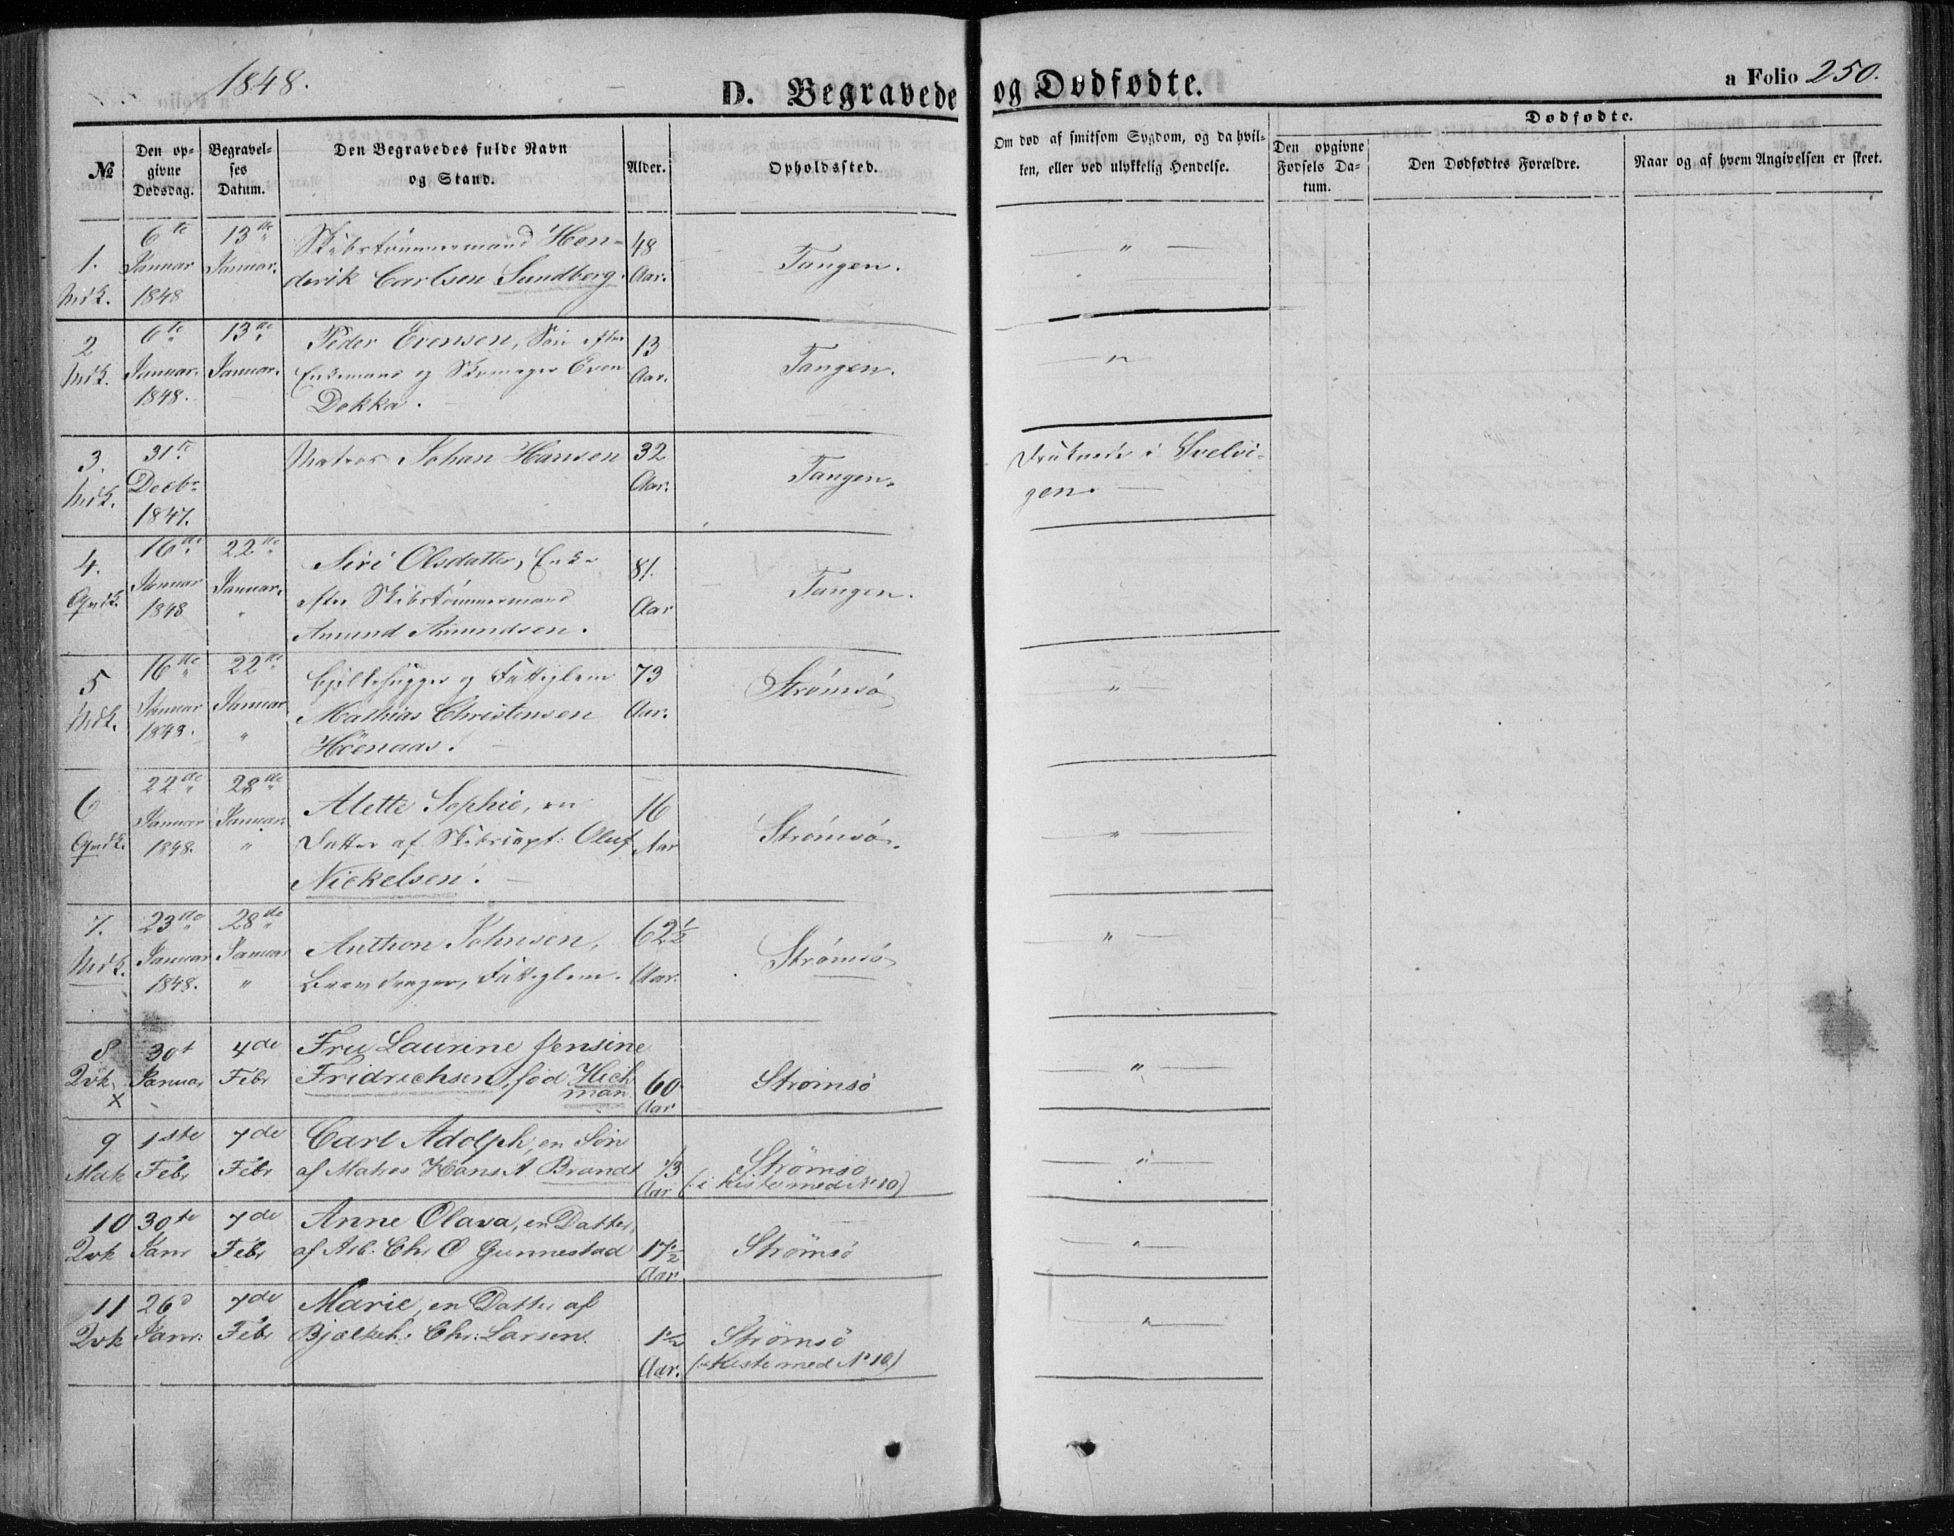 1848.
D. Begravede og Dødfødte.
a Folio 250.
№
Den opgivne Dødsdag.
Begravelses Datum.
Den Begravedes fulde Navn og Stand.
Alder.
Opholdssted.
Om død af smitsom Sygdom, og da hvilken, eller ved ulykkelig Hendelse.
Dødfødte.
Den opgivne Fødsels Datum.
Den Dødfødtes Forældre.
Naar og af hvem Angivelsen er skeet.
1. Mdk.
6te Januar 1848
13de Januar.
Skibstømmermand Hen-
derik Carlsen Sundberg.
48 Aar.
Tangen.
"
2 Mdk.
6te Januar. 1848.
13de Januar.
Peder Evensen, Søn efter
Enkemand og Skomager Even
Dokka.
13 Aar.
Tangen.
"
3. Mdk.
31te Decbr 1847.
Matros Johan Hansen
32 Aar.
Tangen.
Druknede i Svelvi-
gen.
4. Qndk.
16de Januar 1848
22de Januar. "
Siri Olsdatter, Enke
efter Skibstømmermand
Amund Amundsen.
81. Aar
Tangen.
5 Mdk.
16de Januar 1848.
22de Januar "
Bjelkehugger og Fattiglem
Mathias Christensen
Horenaas.
73 Aar.
Strømsø
"
6 Qndk.
22de Januar 1848.
28de Januar. "
Alette Sophie, en
Datter af Skibscapt: Oluf
Nickelsen.
16 Aar
Strømsø.
"
7. Mdk.
23de Januar 1848.
28de Januar "
Anthon Johnsen,
Fattiglem.
62½ Aar.
Strømsø
"
8 Qvk x
30t Januar
4de Febr
Fru Laurine Jensine
Fridrichsen, fød Hich
man
60 Aar
Strømsö
"
9 Mdk
1ste Febr
7de Febr
Carl Adolph, en Søn
af Matros Hans A Brandt
⅓ Aar
Strømsö
(: i Kiste med N 10)
"
10 Qvk
30te Janr
7de Febr
Anne Olava, en Datter
af Arb. Chr O Gunnestad
17½ Aar.
Strömsö
"
11 Qvk
26d Janr:
7de Febr
Marie, en Datter af
Bjælkeh. Chr: Larsen.
1½ Aar.
Strømsö
(: Kiste med N 10)
"